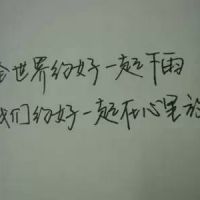 全世界约好一起下雨
我们约好一起在心里